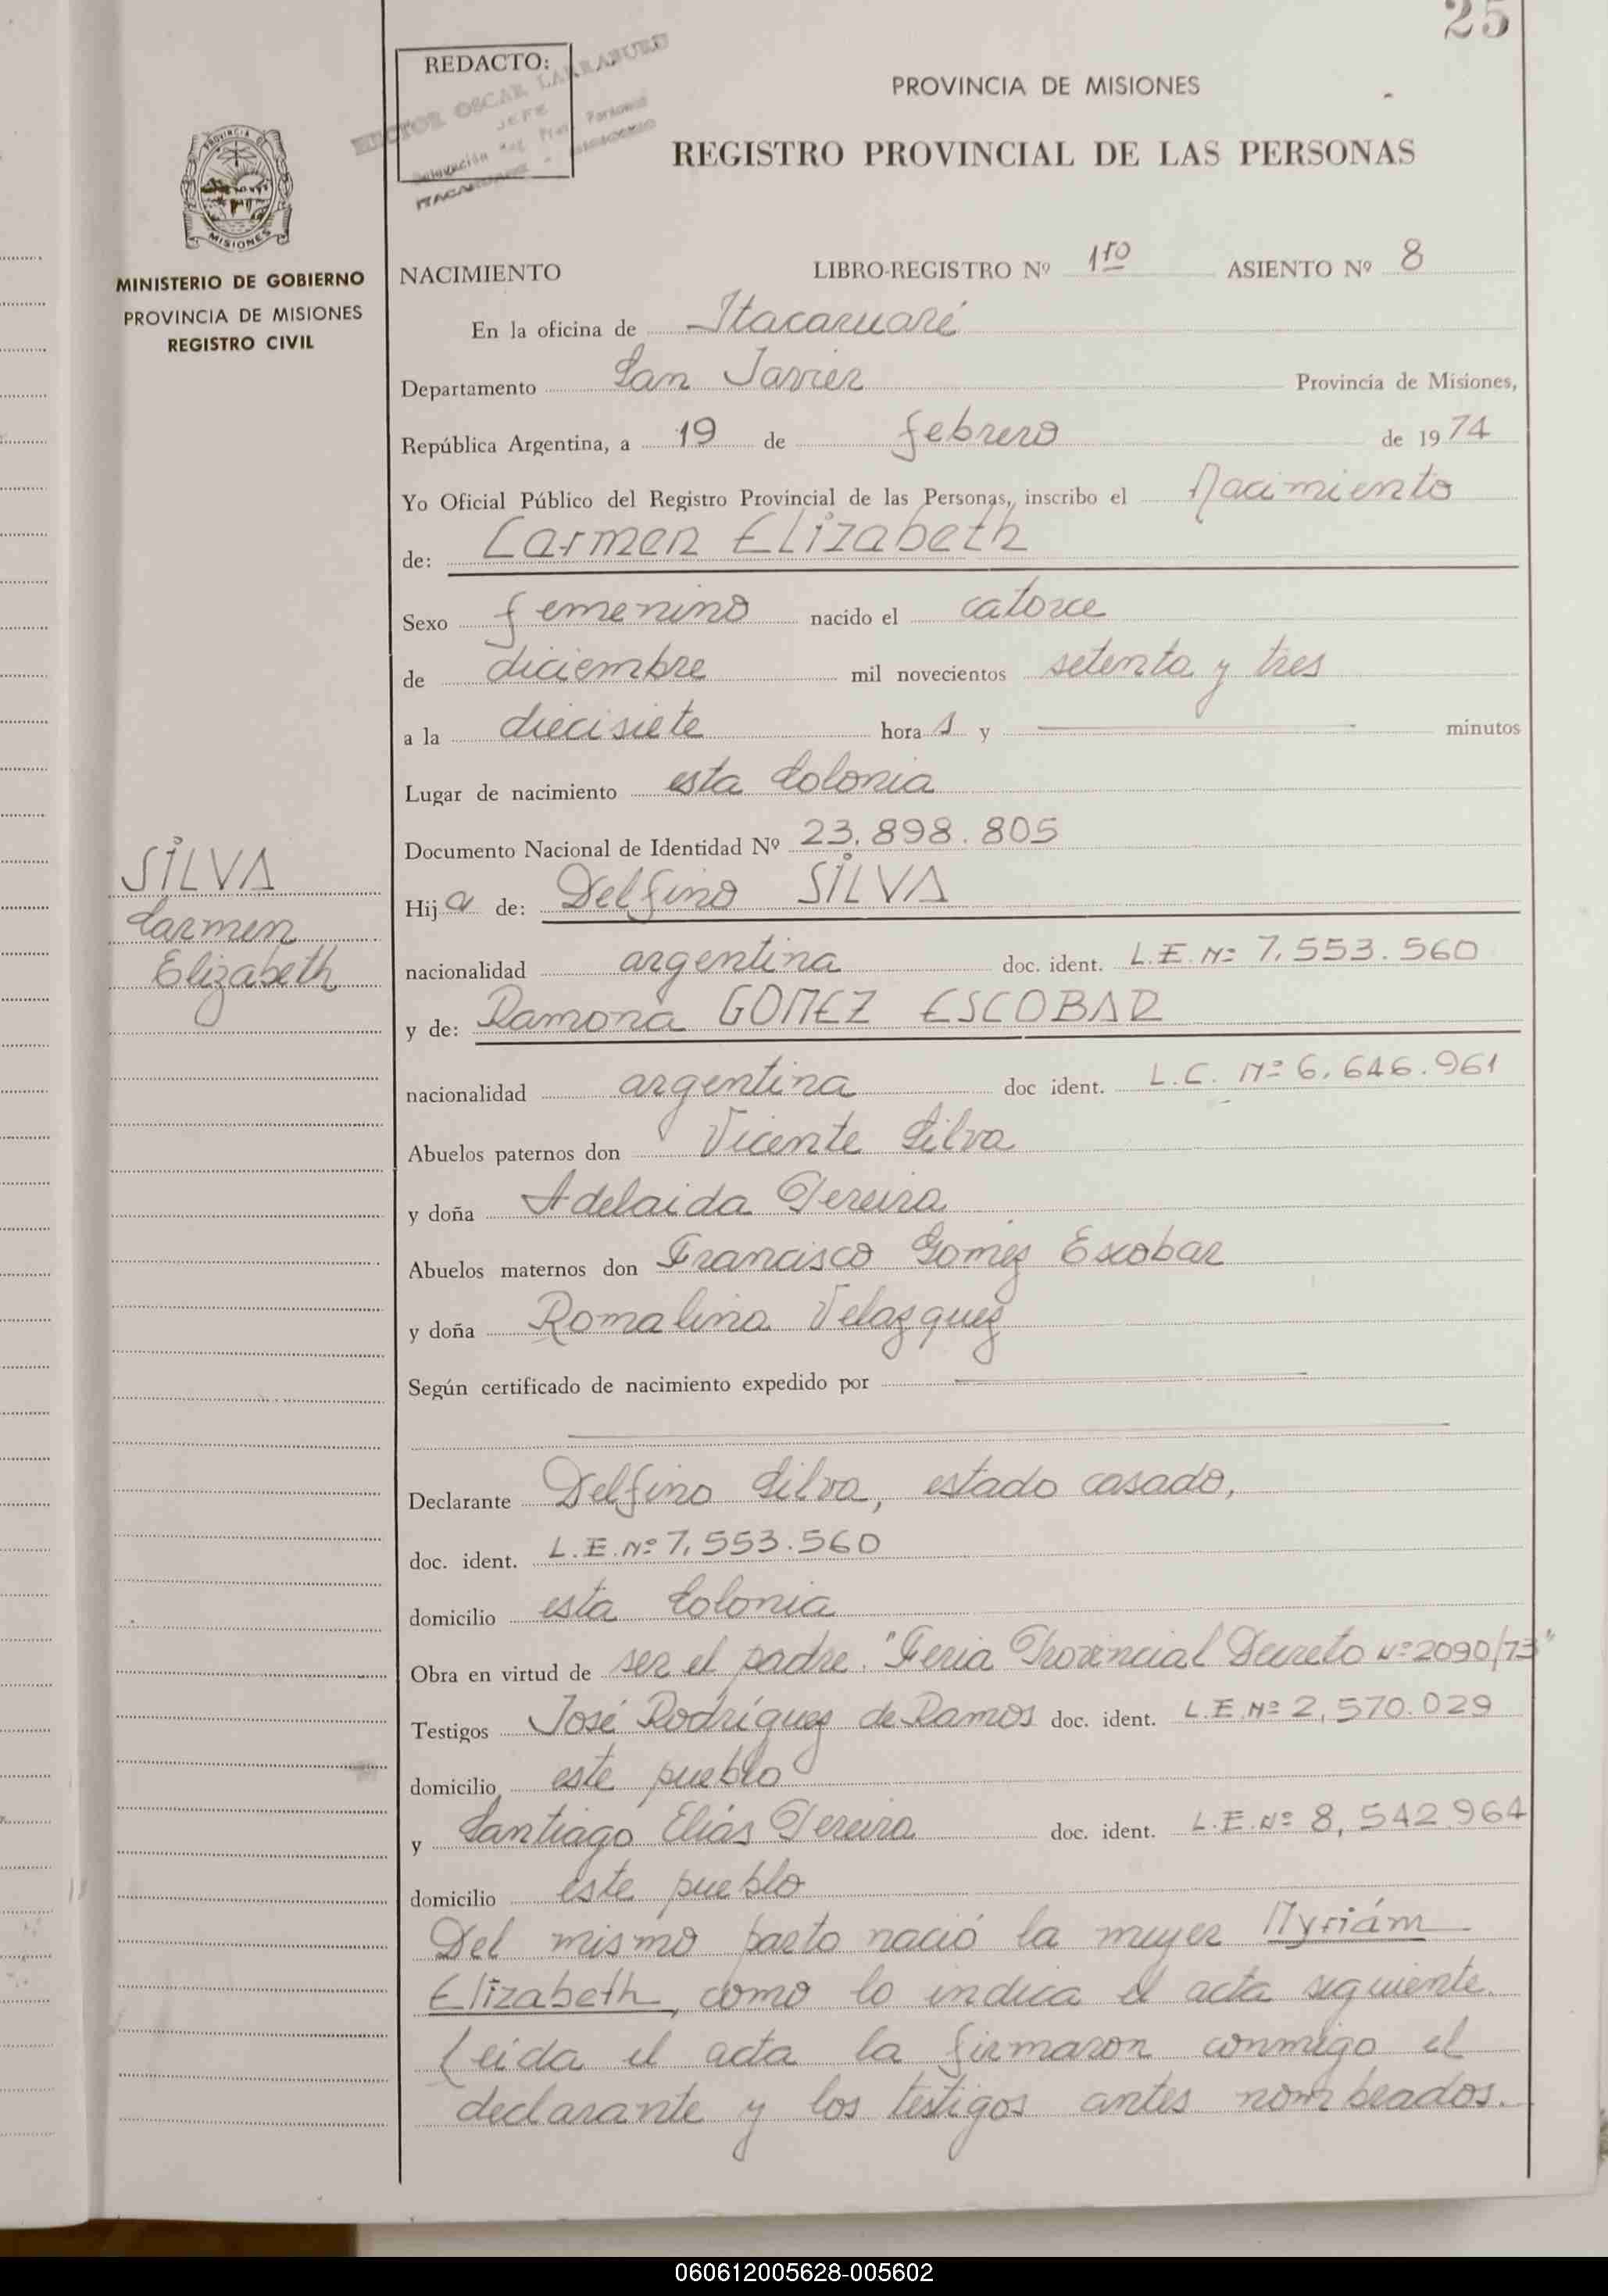 25
REDACTO:
HECTOR OSCAR LARRABURE
JEFE
ITACARUARE
PROVINCIA DE MISIONES
REGISTRO PROVINCIAL DE LAS PERSONAS
PROVINCIA
MISIONES
MINISTERIO DE GOBIERNO
PROVINCIA DE MISIONES
REGISTRO CIVIL
NACIMIENTO LIBRO-REGISTRO Nº 1ro ASIENTO Nº 8
En la oficina de Itacaruaré
Departamento San Javier Provincia de Misiones,
República Argentina, a 19 de febrero de 1974
Yo Oficial Público del Registro Provincial de las Personas, inscribo el Nacimiento
de: Carmen Elizabeth
Sexo femenino nacido el catorce
de diciembre mil novecientos setenta y tres
a la diecisiete hora s y minutos
Lugar de nacimiento esta Colonia
Documento Nacional de Identidad Nº 23.898.805
SILVA
Carmen
Elizabeth
Hija de: Delfino SILVA
nacionalidad argentina doc. ident. L.E. Nº 7.553.560
y de: Ramona GOMEZ ESCOBAR
nacionalidad argentina doc ident. L.C. Nº 6.646.961
Abuelos paternos don Vicente Silva
y doña Adelaida Pereira
Abuelos maternos don Francisco Gomez Escobar
y doña Romalina Velazquez
Según certificado de nacimiento expedido por
Declarante Delfino Silva, estado casado,
doc. ident. L.E. Nº 7.553.560
domicilio esta Colonia
Obra en virtud de ser el padre. "Feria Provincial Decreto Nº 2090/73"
Testigos José Rodríguez de Ramos doc. ident. L.E. Nº 2.570.029
domicilio este pueblo
y Santiago Elías Pereira doc. ident. L.E. Nº 8.542.964
domicilio este pueblo
Del mismo parto nació la mujer Myriám
Elizabeth, como lo indica el acta siguiente.
Leida el acta la firmaron conmigo el
declarante y los testigos antes nombrados.
060612005628-005602